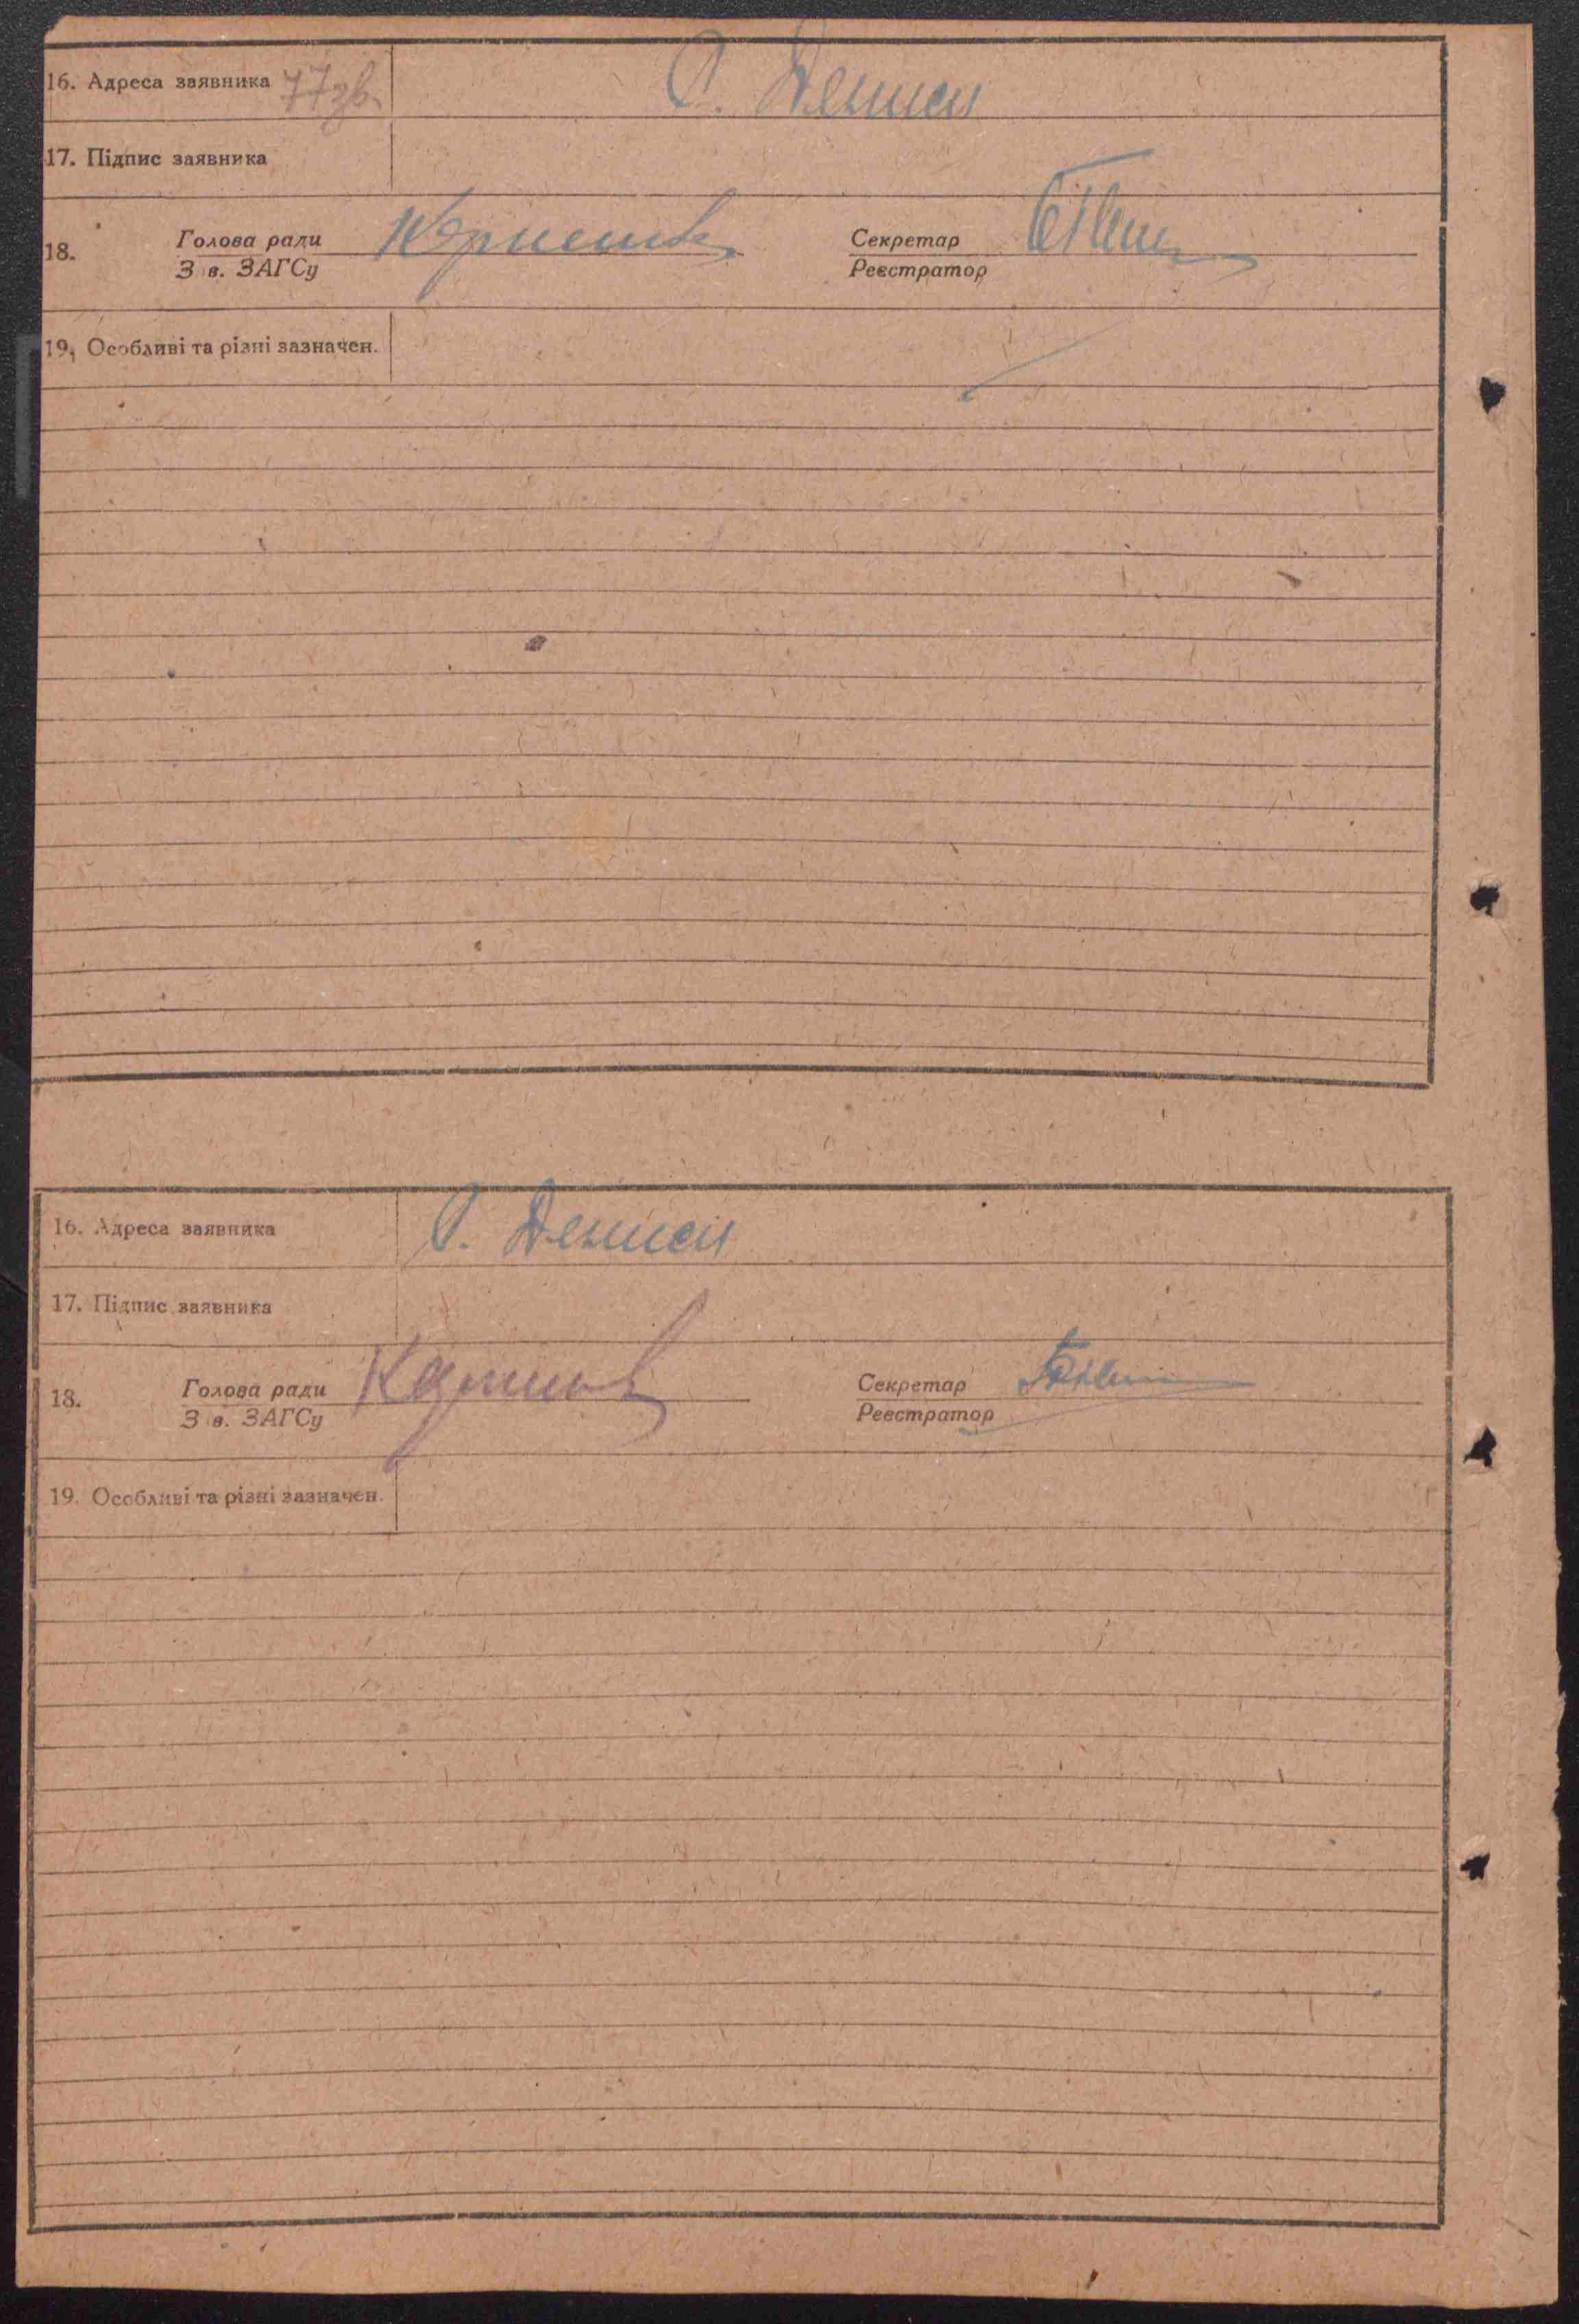 16. Адреса заявника 77зв. С. Дениси
17. Підпис заявника
18. Голова ради Секретар
З в. ЗАГСу Реєстратор
19. Особливі та різні зазначен.
16. Адреса заявника С. Дениси
17. Підпис заявника
18. Голова ради Секретар
З в. ЗАГСу Реєстратор
19. Особливі та різні зазначен.